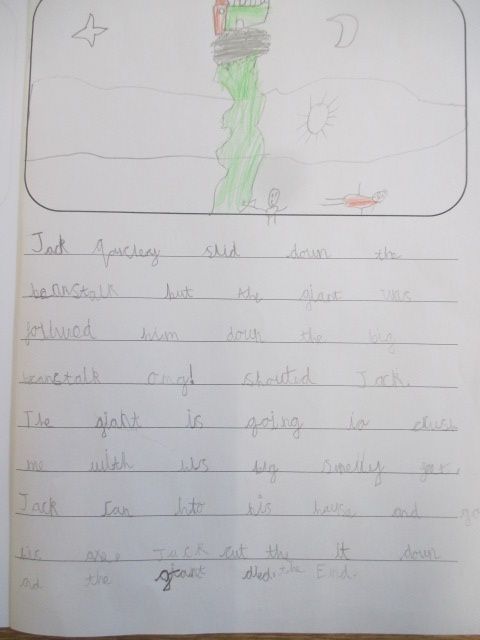 Jack quicley slid down the
beanstalk but the giant was
follwed him down the big
beanstalk omg! shouted Jack.
The giant is going to crush
me with his big smelly feet.
Jack ran into his house and
his axe. Jack cut the it down
and the giant died. the End.